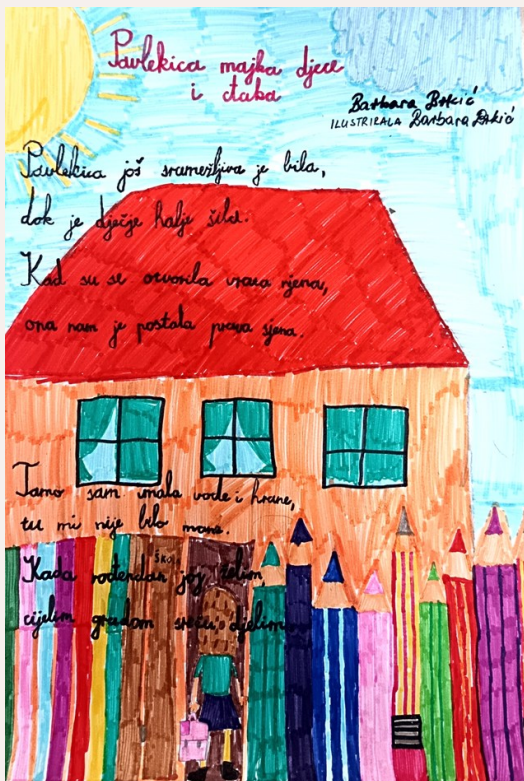 Pavlekica majka djece
i đaka
Barbara Brkić
ILUSTRIRALA Barbara Brkić
Pavlekica još sramežljiva je bila,
dok je dječje halje šila.
Kad su se otvorila vrata njena,
ona nam je postala prava sjena.
Tamo sam imala vode i hrane,
tu mi nije bilo mane.
ŠKO
Kada rođendan joj želim
cijelim gradom sreću djelim